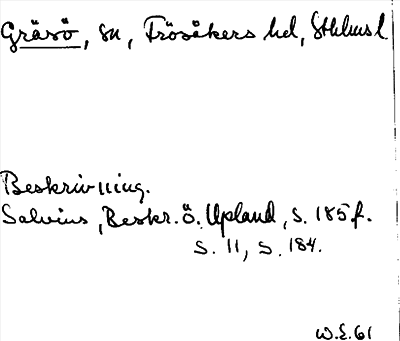 Gräsö, sn, Frösåkers hd, Sthlms l
Beskrivning.
Salvius, Beskr. ö. Upland, s. 185 f.
s. 11, s. 184.
W.E. 61